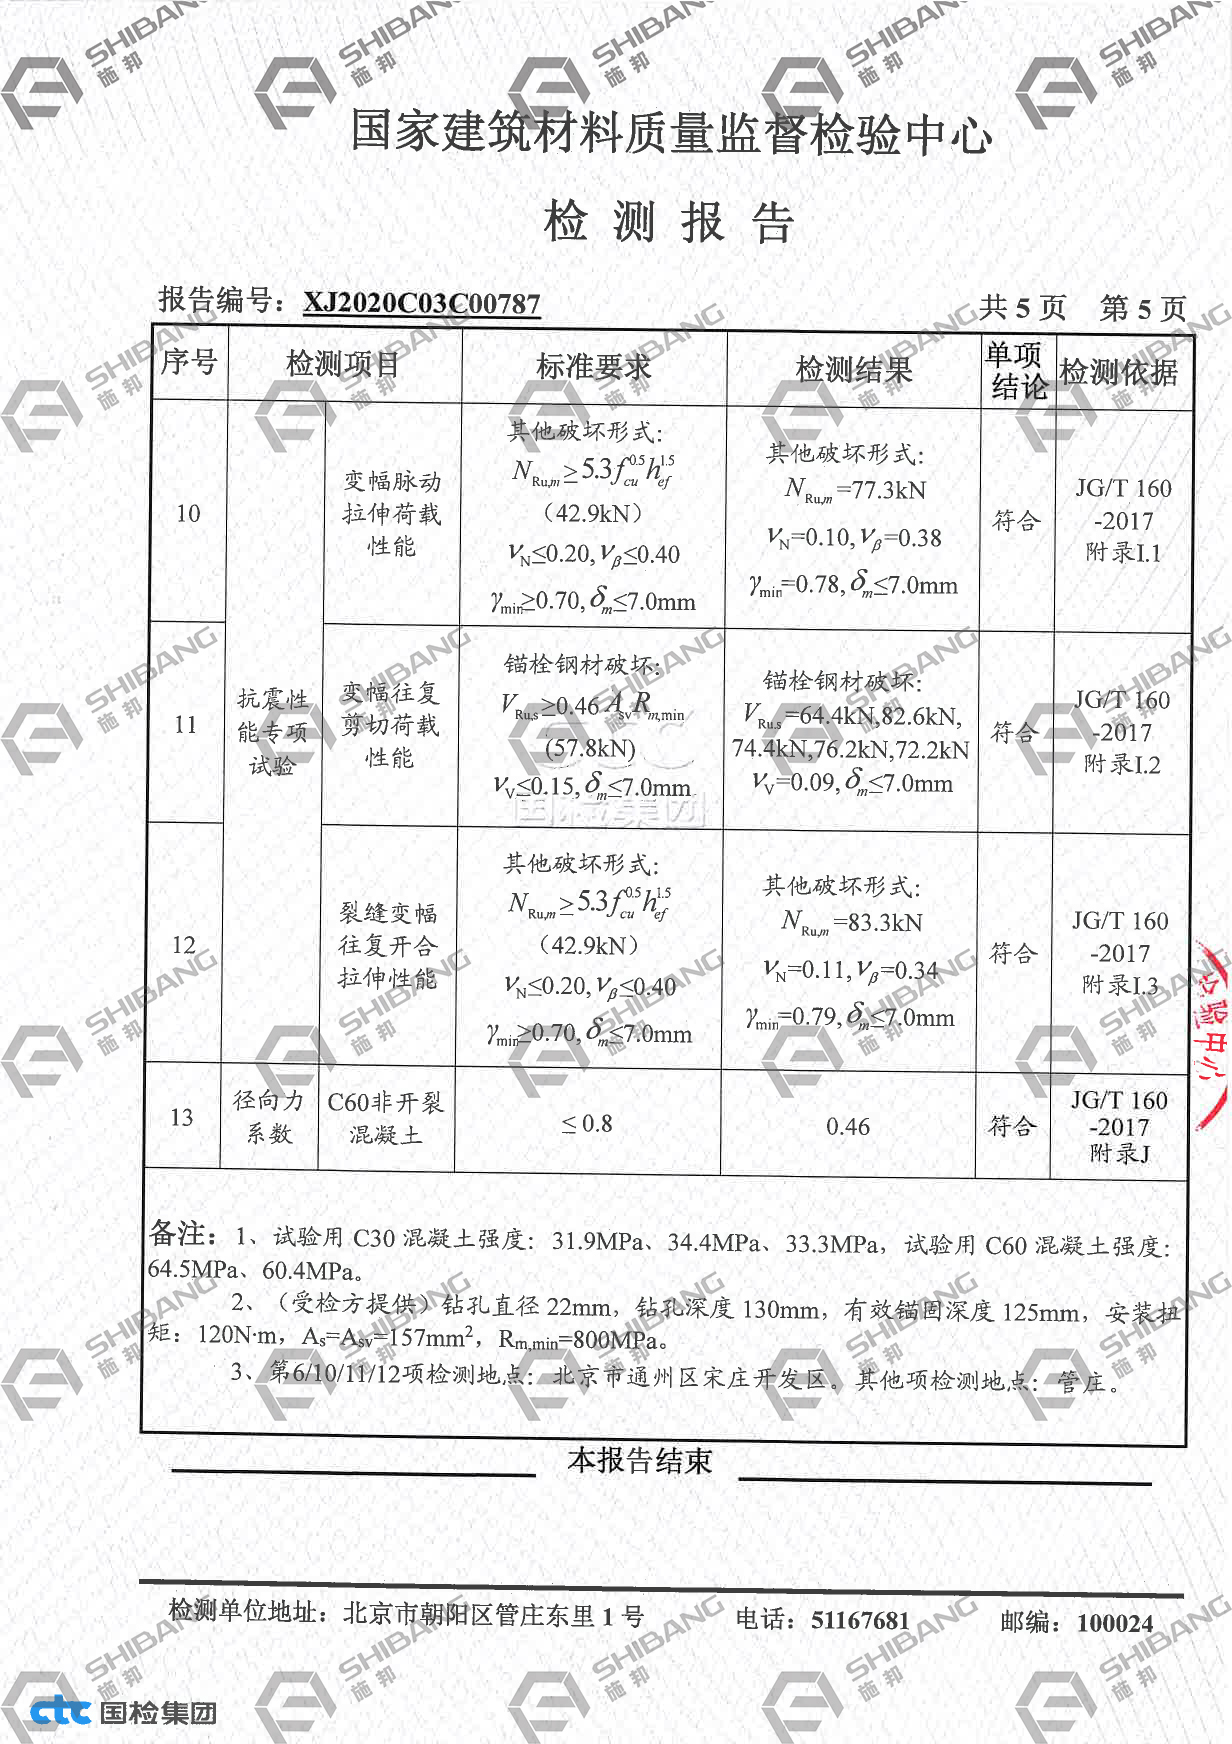 国家建筑材料质量监督检验中心
检 测 报 告
报告编号：XJ2020C03C00787
共 5 页 第 5 页
序号 检测项目 标准要求 检测结果 单项结论 检测依据
10
抗震性
能专项
试验
变幅脉动
拉伸荷载
性能
其他破坏形式：
N Ru,m ≥ 5.3 f cu^0.5 h ef^1.5
（42.9kN）
νN≤0.20, νβ≤0.40
γmin≥0.70, δm≤7.0mm
其他破坏形式：
N Ru,m =77.3kN
νN=0.10, νβ=0.38
γmin=0.78, δm≤7.0mm
符合
JG/T 160
-2017
附录I.1
11
变幅往复
剪切荷载
性能
锚栓钢材破坏：
V Ru,s ≥0.46 Asv R m,min
(57.8kN)
νV≤0.15, δm≤7.0mm
锚栓钢材破坏：
V Ru,s =64.4kN,82.6kN,
74.4kN,76.2kN,72.2kN
νV=0.09, δm≤7.0mm
符合
JG/T 160
-2017
附录I.2
12
裂缝变幅
往复开合
拉伸性能
其他破坏形式：
N Ru,m ≥ 5.3 f cu^0.5 h ef^1.5
（42.9kN）
νN≤0.20, νβ≤0.40
γmin≥0.70, δm≤7.0mm
其他破坏形式：
N Ru,m =83.3kN
νN=0.11, νβ=0.34
γmin=0.79, δm≤7.0mm
符合
JG/T 160
-2017
附录I.3
13
径向力
系数
C60非开裂
混凝土
≤ 0.8
0.46
符合
JG/T 160
-2017
附录J
备注：1、试验用 C30 混凝土强度：31.9MPa、34.4MPa、33.3MPa，试验用 C60 混凝土强度：
64.5MPa、60.4MPa。
2、（受检方提供）钻孔直径 22mm，钻孔深度 130mm，有效锚固深度 125mm，安装扭
矩：120N·m，As=Asv=157mm²，Rm,min=800MPa。
3、第6/10/11/12项检测地点：北京市通州区宋庄开发区。其他项检测地点：管庄。
本报告结束
检测单位地址：北京市朝阳区管庄东里 1 号 电话：51167681 邮编：100024
ctc 国检集团
SHIBANG
施邦
国检集团
中心